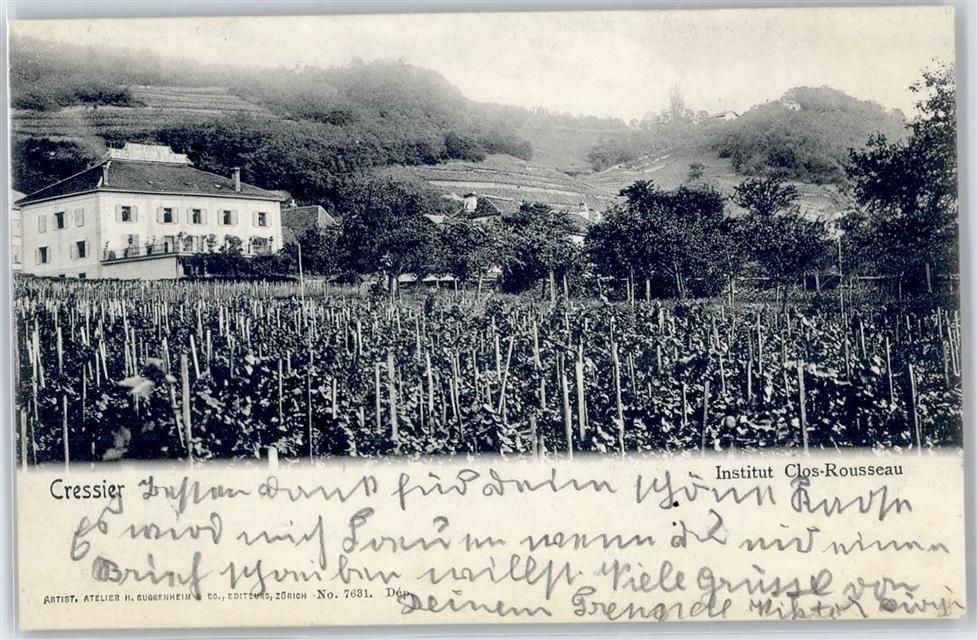 Institut Clos-Rousseau
Cressier
besten dank für deine schöne Karte
Es wird mich freuen wenn du mir einen
Brief schreiben willst. Viele Grüsse von
ARTIST. ATELIER H. GUGGENHEIM & CO., EDITEURS, ZÜRICH No. 7631. Dép.
Deinem Viktor